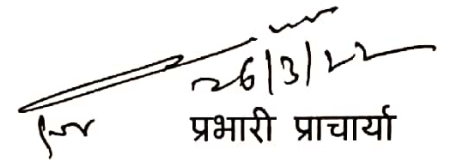 26/3/22
प्रभारी प्राचार्या